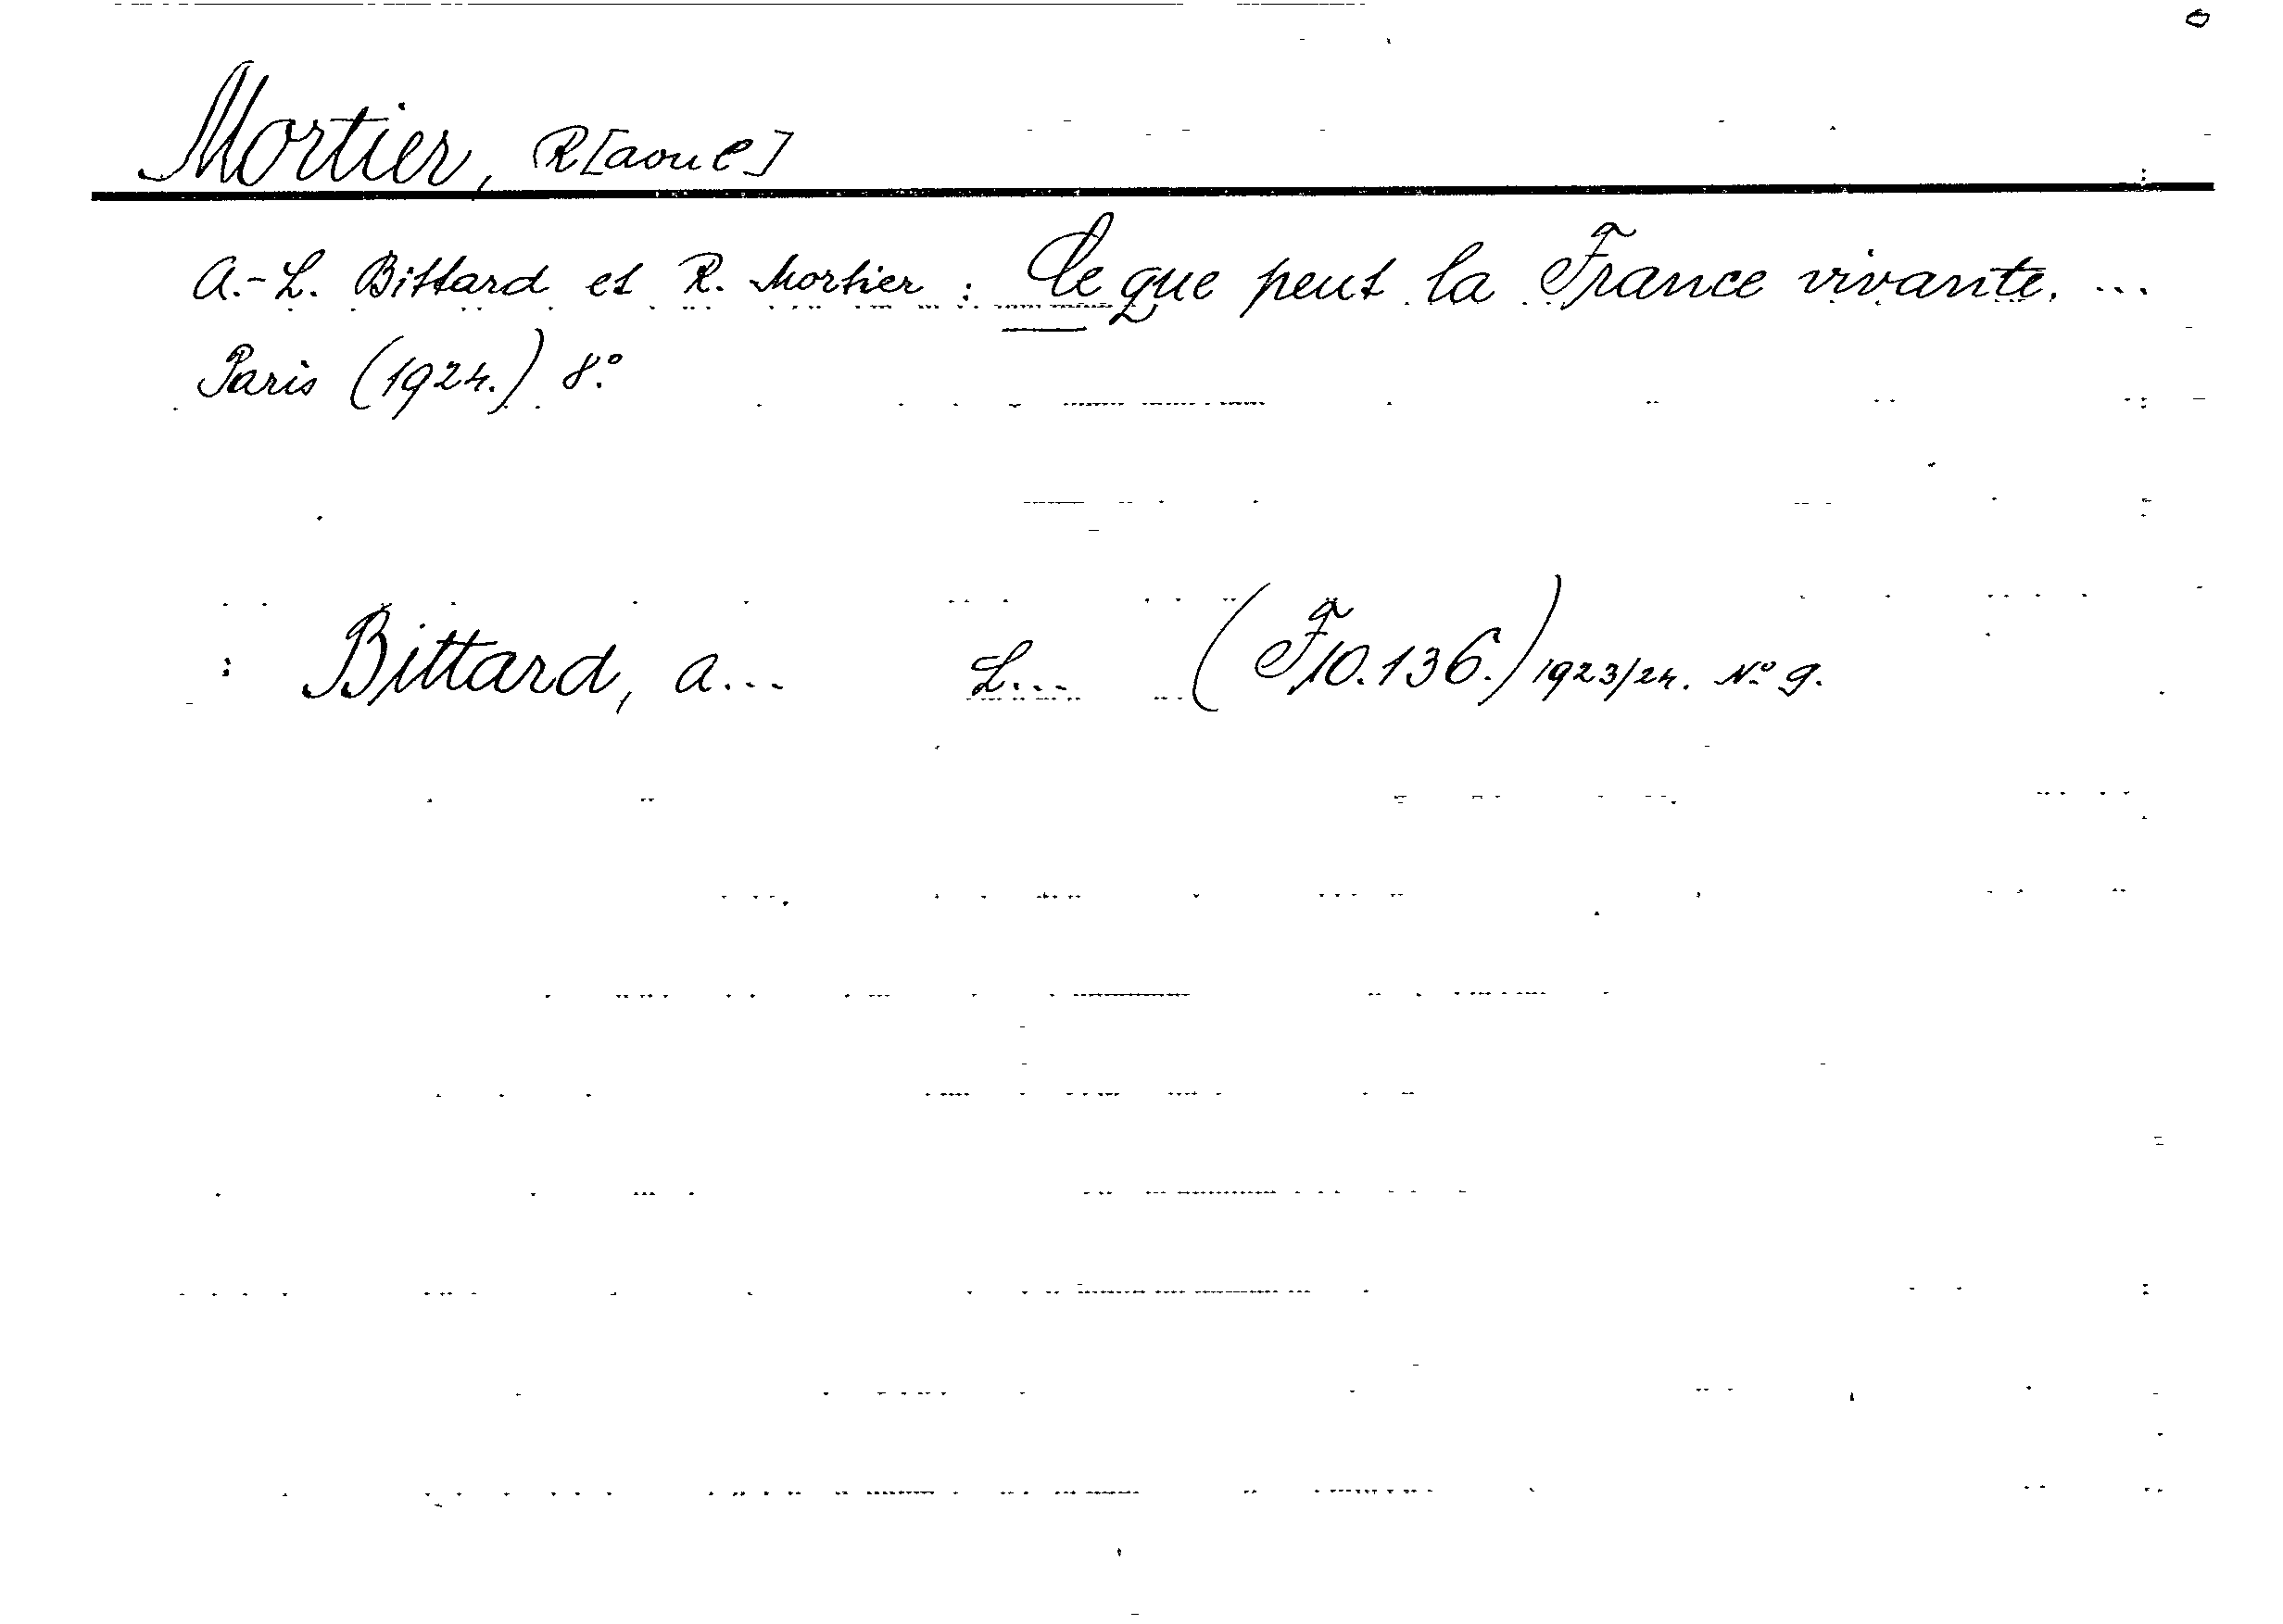 Mortier, R[aoul]
A.-L. Bittard et R. Mortier: Ce que peut la France vivante. ...
Paris (1924.) 8.°
: Bittard, A... L... (F10.136.) 1923/24. N.° 9.